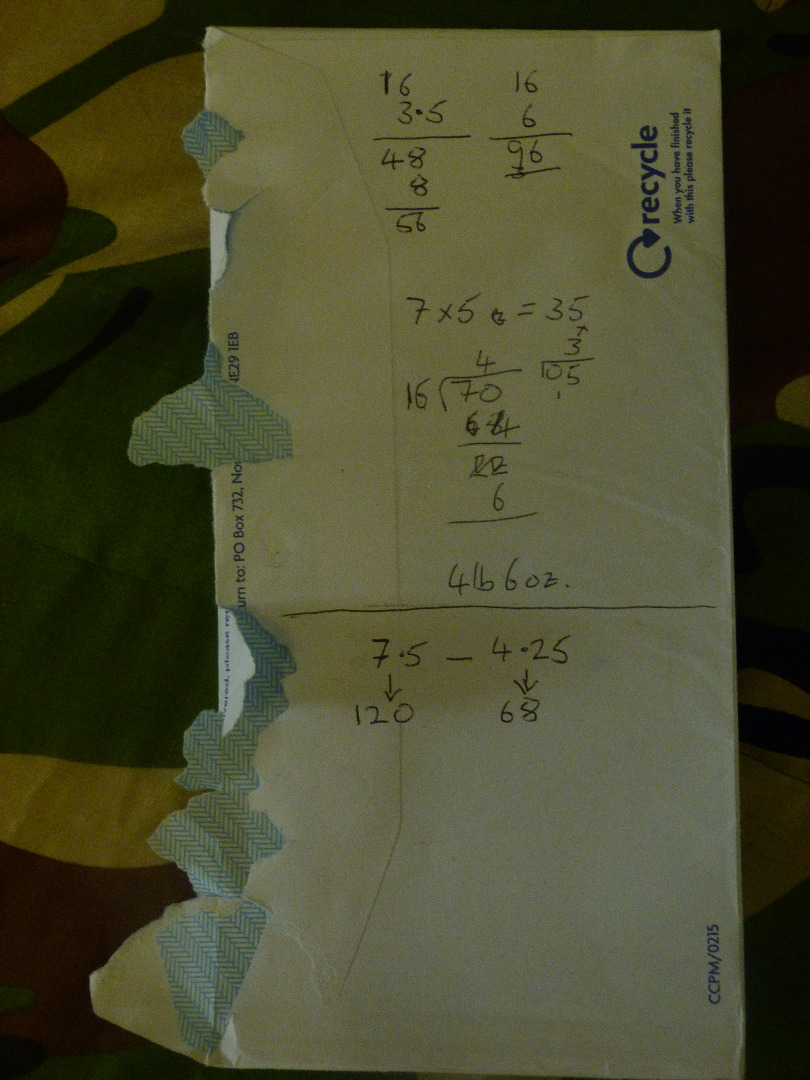 16
3.5
48
8
56
16
6
96
7 × 5 = 35
3 ×
105
4
16 70
64
6
4lb 6oz.
7.5 – 4.25
↓ ↓
120 68
recycle
When you have finished
with this please recycle it
urn to: PO Box 732, No
NE29 1EB
vered, please re
CCPM/0215